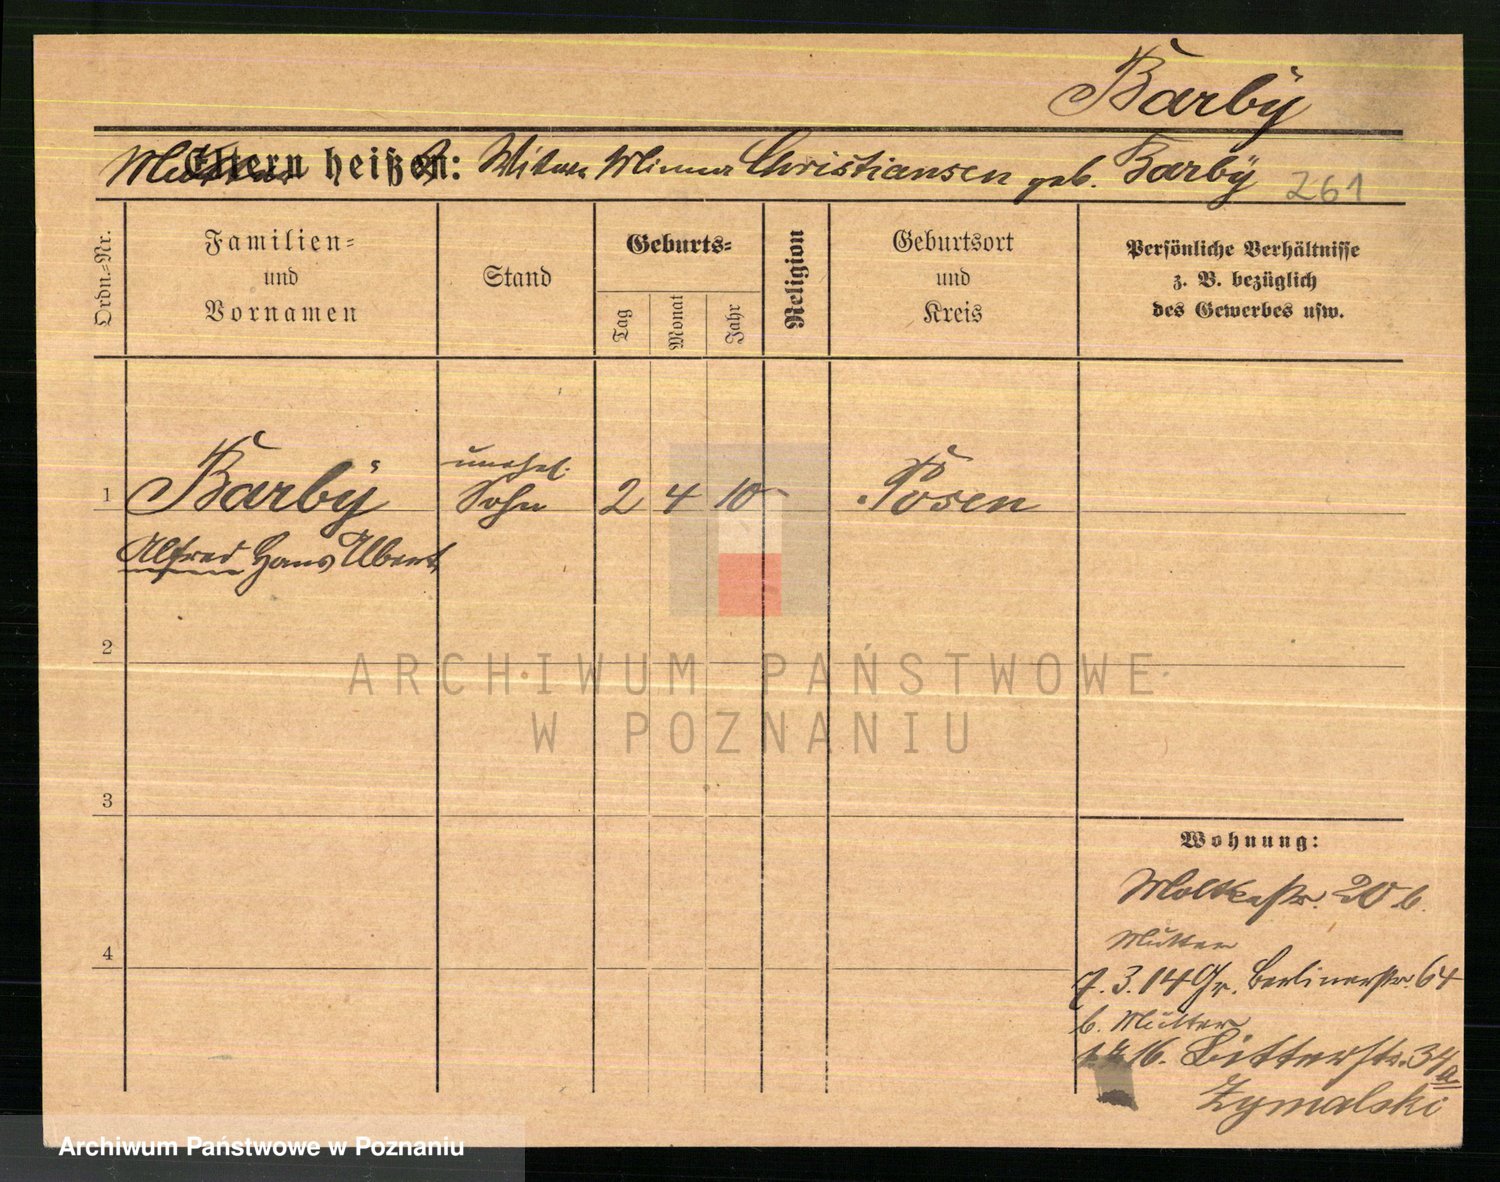 Barby
Mutter heißt: Witwe Minna Christiansen geb. Barby 261
Ordn.=Nr.
Familien=
und
Vornamen
Stand
Geburts=
Tag
Monat
Jahr
Religion
Geburtsort
und
Kreis
Persönliche Verhältnisse
z. B. bezüglich
des Gewerbes usw.
unehel.
1 Barby Sohn 2 4 10 Posen
Alfred Hans Albert
2
ARCHIWUM PAŃSTWOWE
W POZNANIU
3
Wohnung:
Moltkestr. 20 b.
Mutter
4
7.3.14 Gr. Berlinerstr. 64
b. Mutter
16. Ritterstr. 34a
Zymalski
Archiwum Państwowe w Poznaniu